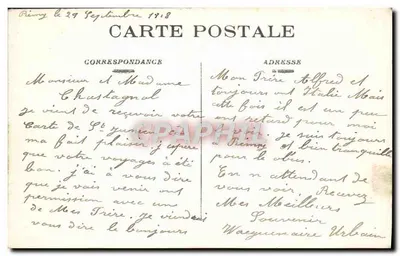 Rémy le 29 Septembre 1918
CARTE POSTALE
CORRESPONDANCE
ADRESSE
Monsieur et Madame
Chastagnol
je vient de recevoir votre
Carte de St qui
ma fait plaisir j'espere
que votre voyages à été
bon. j'ai à vous dire
que je vais venir ont
permission avec un
de Mes Frère. je viendrai
vous dire le bonjours
Mon Frère Alfred et
toujours ont Italie Mais
cette fois il est un peu
ont retard pour moi
je suis toujours
Rémy et bien tranquille
pour le
En n attendant de
vous voir. Recevez
Mes Meilleurs
Souvenir
Wacquenaire Urbain